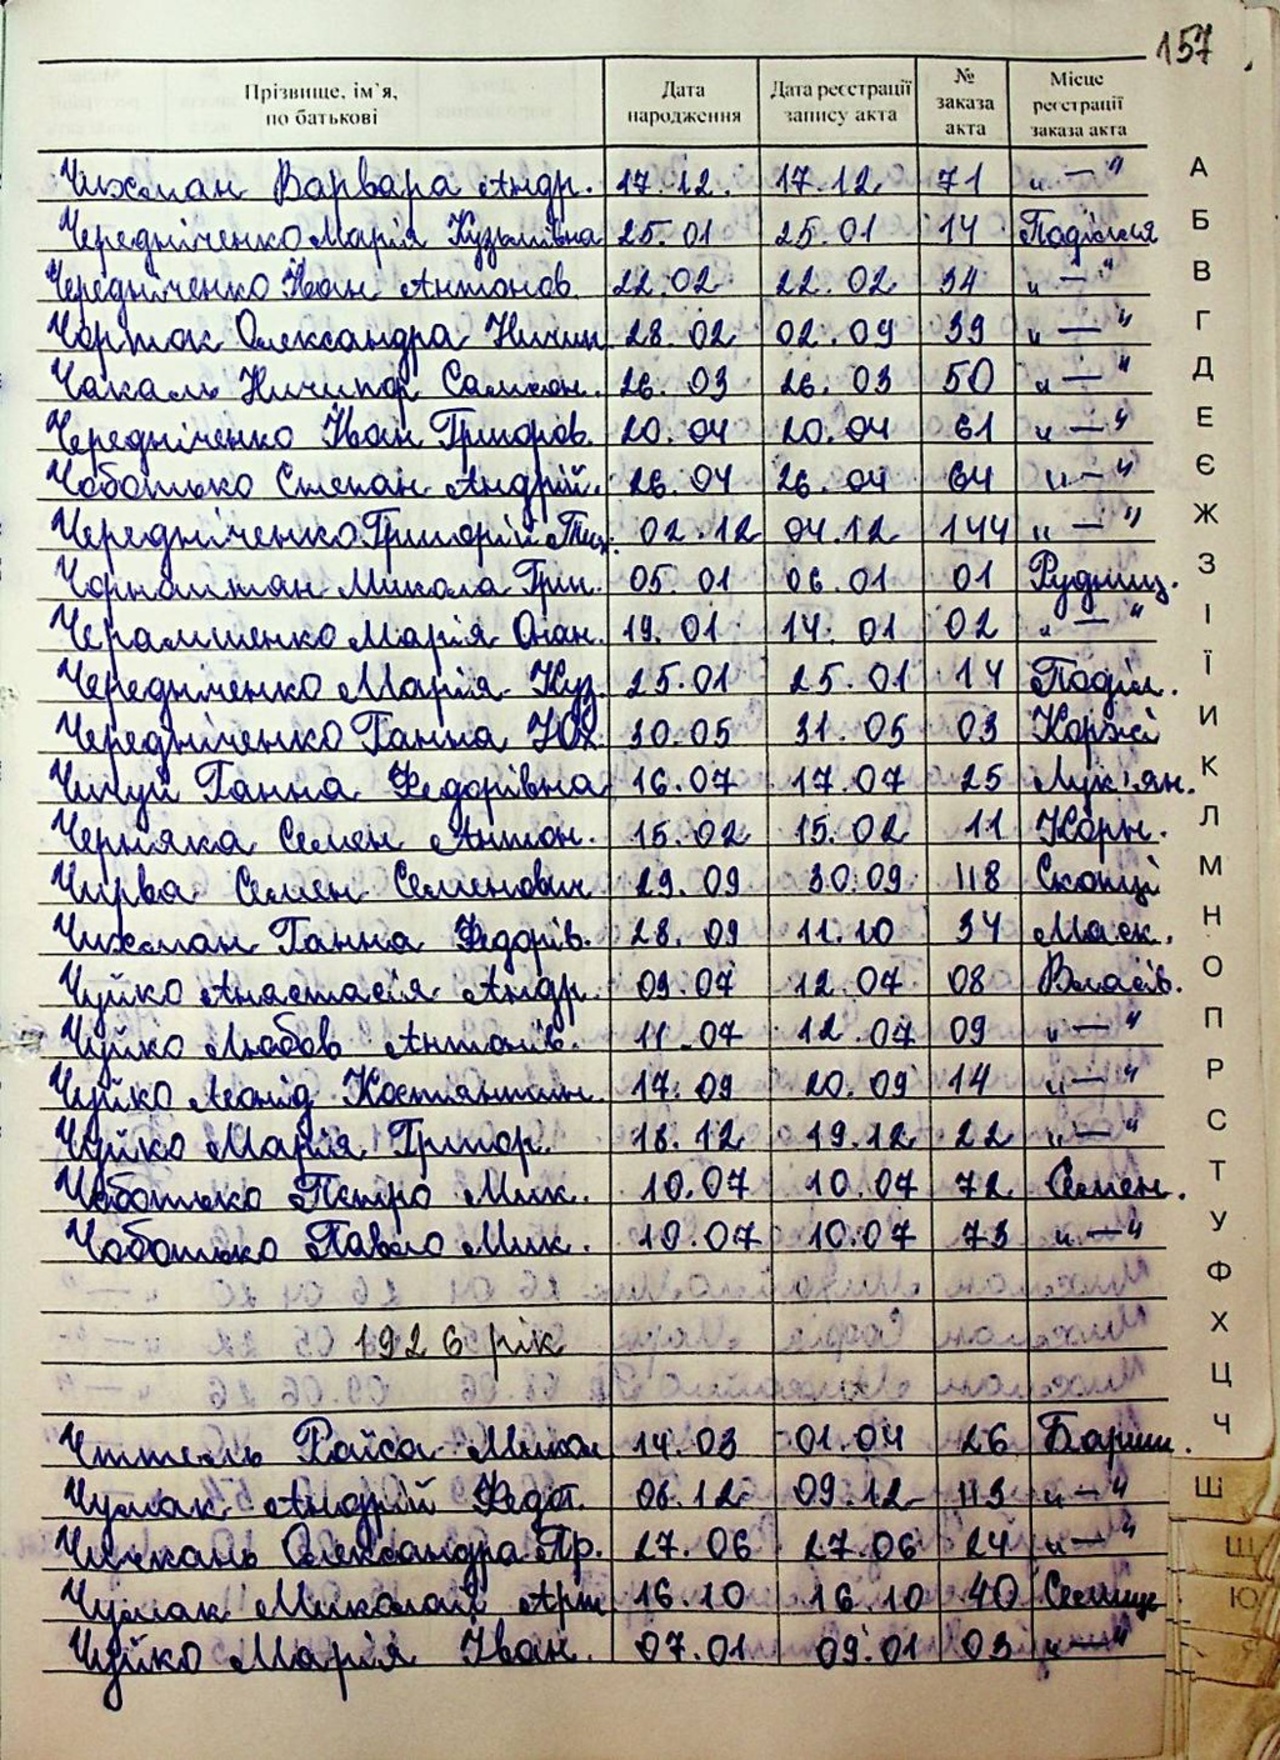 157
Прізвище, ім'я, по батькові Дата народження Дата реєстрації запису акта № заказа акта Місце реєстрації заказа акта
Чихман Варвара Андр. 17.12. 17.12 71 "—"
Чередніченко Марія Кузьмівна 25.01 25.01 14 Поділля
Чередніченко Іван Антонов. 22.02 22.02 34 "—"
Чорток Олександра Ничип 28.02 02.09 39 "—"
Чакаль Ничипор Самсон. 26.03 26.03 50 "—"
Чередніченко Іван Григоров. 20.04 20.04 61 "—"
Чоботько Степан Андрій. 26.04 26.04 64 "—"
Чередніченко Григорій Тих. 02.12 04.12 144 "—"
Микола Гри. 05.01 06.01 01 Рудниц.
Марія Опан. 19.01 14.01 02 "—"
Чередніченко Марія Куз. 25.01 25.01 14 Поділ.
Чередніченко Ганна Юх. 30.05 31.05 03 Коржі
Чичуй Ганна Федорівна 16.07 17.07 25 Лук'ян.
Черняка Семен Антон. 15.02 15.02 11 Корн.
Чирва Семен Семенович 29.09 30.09 118 Скопці
Чихман Ганна Федорів. 28.09 11.10 34 Маск.
Чуйко Анастасія Андр. 09.07 12.07 08 Власів.
Чуйко Любов Антонів. 11.07 12.07 09 "—"
Чуйко Леонід Костянтин. 17.09 20.09 14 "—"
Чуйко Марія Григор. 18.12 19.12 22 "—"
Чоботько Петро Мик. 10.07 10.07 72 Семен.
Чоботько Павло Мик. 10.07 10.07 73 "—"
1926 рік
Раїса Микол 14.03 01.04 26 Бариш.
Чумак Андрій Федот. 06.12 09.12 113 "—"
Чичкань Олександра Пр. 27.06 27.06 24 "—"
Чумак Миколай Арт 16.10 16.10 40 Селище
Чуйко Марія Іван. 07.01 09.01 03 "—"
А
Б
В
Г
Д
Е
Є
Ж
З
І
Ї
И
К
Л
М
Н
О
П
Р
С
Т
У
Ф
Х
Ц
Ч
Ш
Щ
Ю
Я